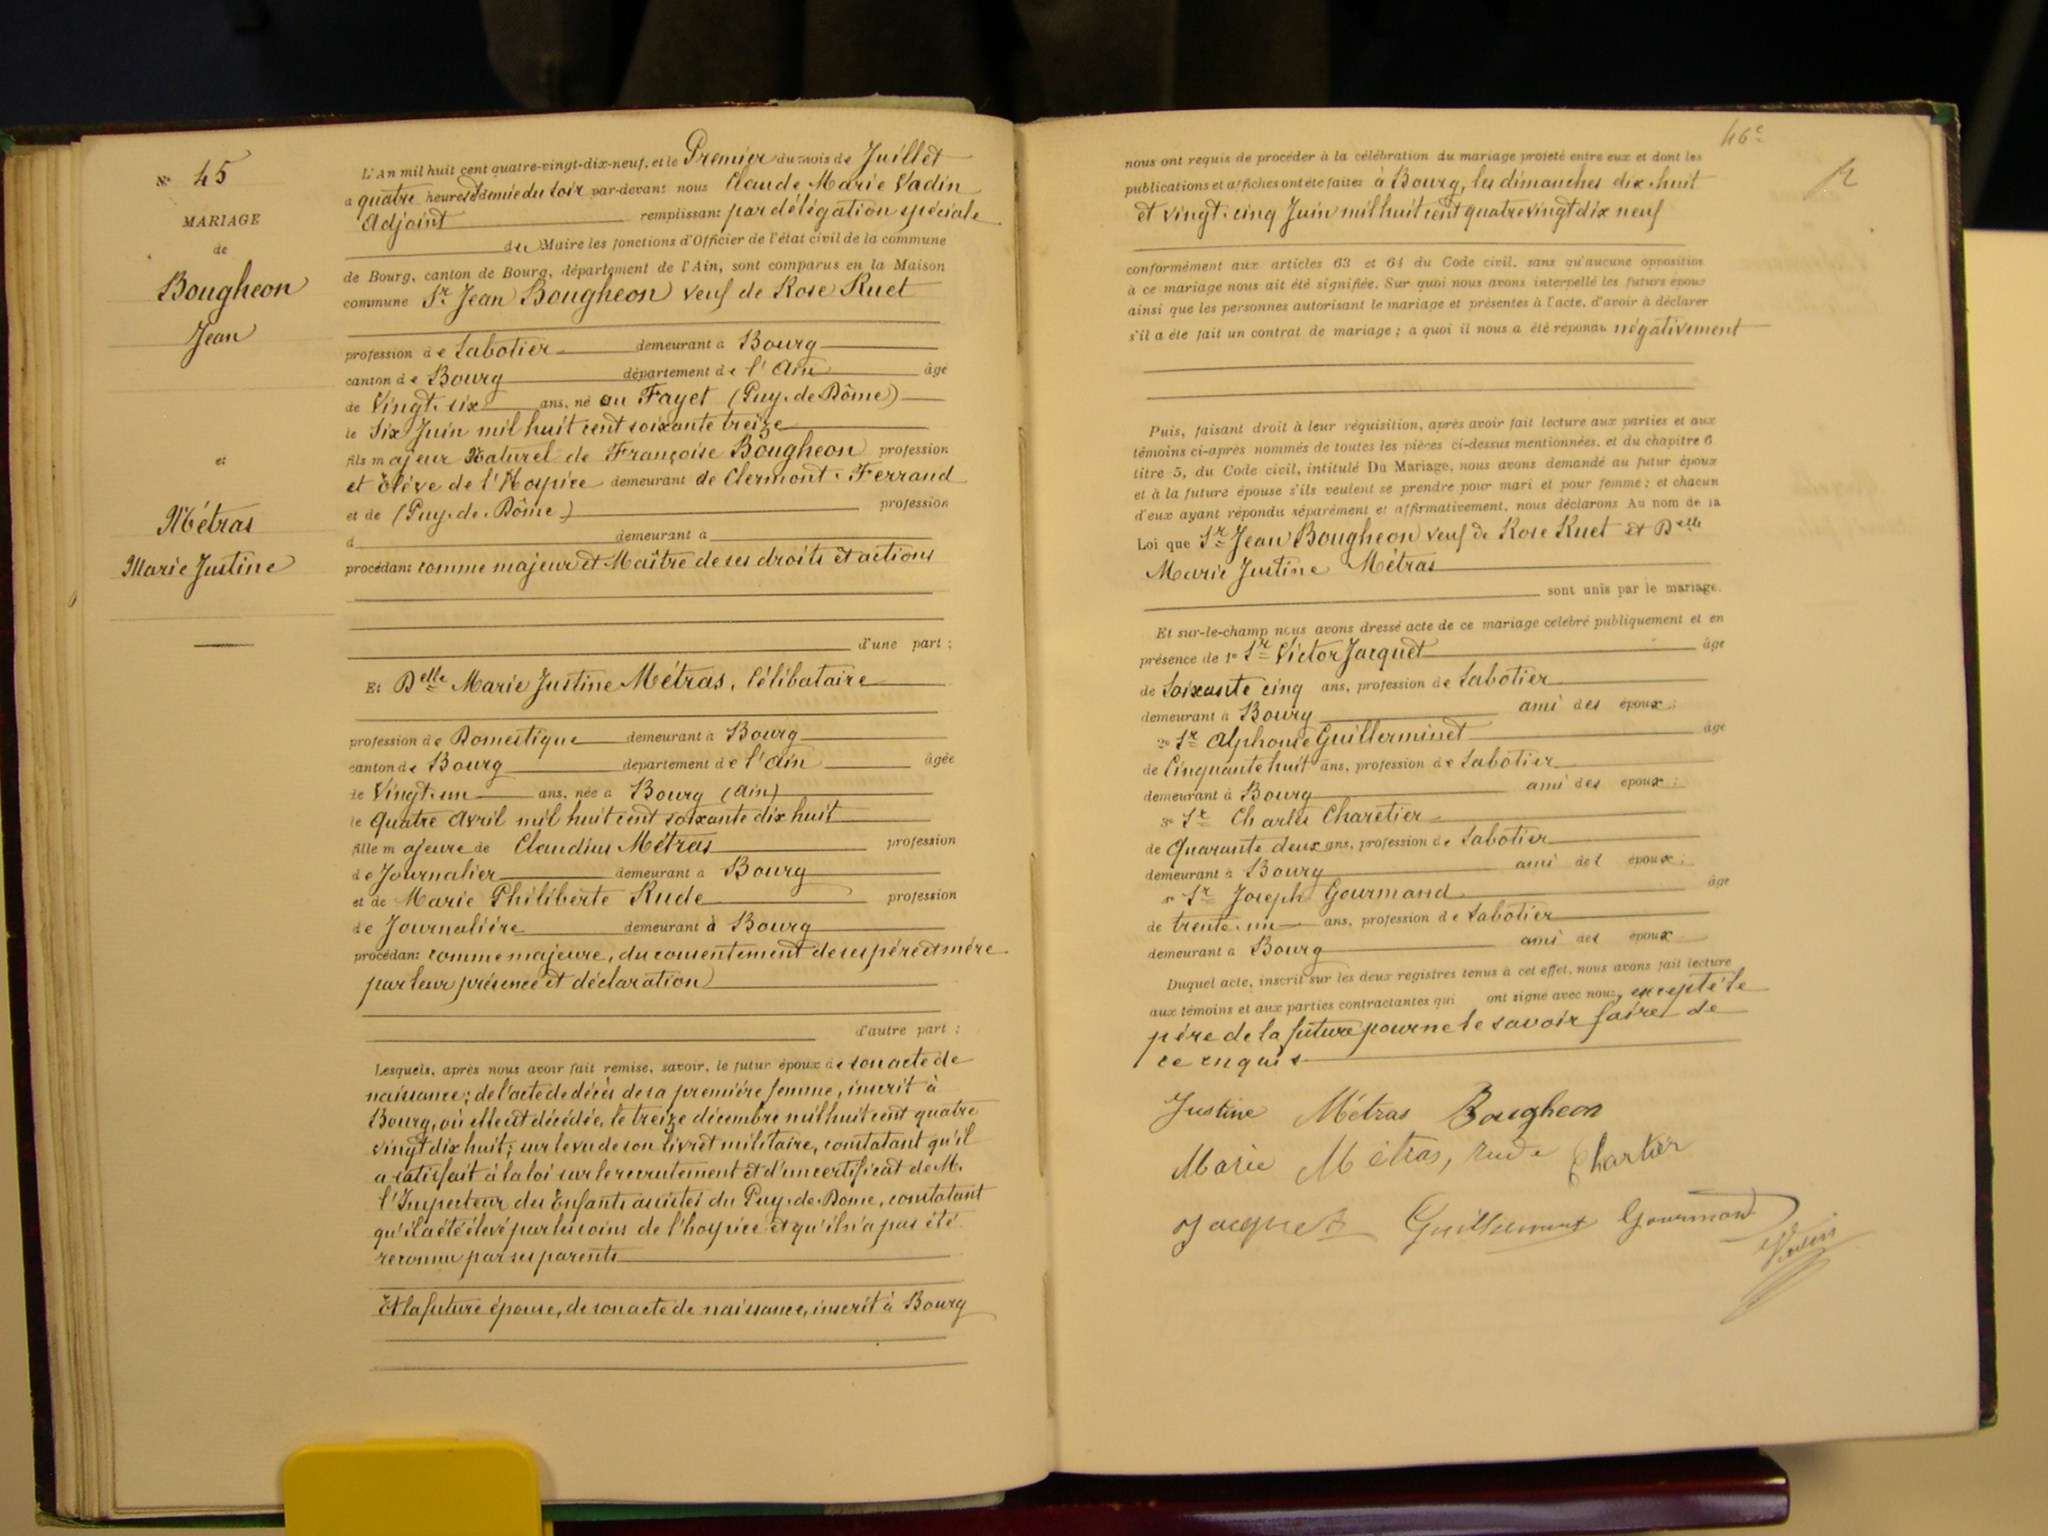 N° 45
MARIAGE
de
Bougheon
Jean
et
Métras
Marie Justine
L'An mil huit cent quatre-vingt-dix-neuf, et le Premier du mois de Juillet
a quatre heures et demie du soir par-devant nous Claude Marie Vadin
Adjoint remplissant par délégation spéciale
du Maire les fonctions d'Officier de l'état civil de la commune
de Bourg, canton de Bourg, département de l'Ain, sont comparus en la Maison
commune Sr Jean Bougheon veuf de Rose Ruet
profession de Sabotier demeurant à Bourg
canton de Bourg département de l'Ain âgé
de Vingt-six ans, né au Fayet (Puy-de-Dôme)
le Six Juin mil huit cent soixante treize
fils majeur Naturel de Françoise Bougheon profession
et Elève de l'Hospice demeurant de Clermont-Ferrand
et de (Puy-de-Dôme) profession
d demeurant à
procédant comme majeur et Maître de ses droits et actions
d'une part ;
Et Delle Marie Justine Métras, Célibataire
profession de Domestique demeurant à Bourg
canton de Bourg département de l'Ain âgée
de Vingt-un ans, née à Bourg (Ain)
le Quatre Avril mil huit cent soixante dix huit
fille majeure de Claudius Métras profession
de Journalier demeurant à Bourg
et de Marie Philiberte Rude profession
de Journalière demeurant à Bourg
procédant comme majeure, du consentement de ses père et mère
par leur présence et déclaration
d'autre part ;
Lesquels, après nous avoir fait remise, savoir, le futur époux de son acte de
naissance ; de l'acte de décès de sa première femme, inscrit à
Bourg, où elle est décédée, le treize décembre mil huit cent quatre
vingt dix huit ; sur le vu de son livret militaire, constatant qu'il
a satisfait à la loi sur le recrutement et d'un certificat de M.
l'Inspecteur des Enfants assistés du Puy-de-Dome, constatant
qu'il a été élevé par les soins de l'hospice et qu'il n'a pas été
reconnu par ses parents
Et la future épouse, de son acte de naissance, inscrit à Bourg
46e
nous ont requis de procéder à la célébration du mariage projeté entre eux et dont les
publications et affiches ont été faites à Bourg, les dimanches dix-huit
et vingt-cinq Juin mil huit cent quatre vingt dix neuf
conformément aux articles 63 et 64 du Code civil, sans qu'aucune opposition
à ce mariage nous ait été signifiée. Sur quoi nous avons interpellé les futurs époux
ainsi que les personnes autorisant le mariage et présentes à l'acte, d'avoir à déclarer
s'il a été fait un contrat de mariage ; a quoi il nous a été répondu négativement
Puis, faisant droit à leur réquisition, après avoir fait lecture aux parties et aux
témoins ci-après nommés de toutes les pièces ci-dessus mentionnées, et du chapitre 6
titre 5, du Code civil, intitulé Du Mariage, nous avons demandé au futur époux
et à la future épouse s'ils veulent se prendre pour mari et pour femme ; et chacun
d'eux ayant répondu séparément et affirmativement, nous déclarons Au nom de la
Loi que Sr Jean Bougheon veuf de Rose Ruet et Delle
Marie Justine Métras
sont unis par le mariage.
Et sur-le-champ nous avons dressé acte de ce mariage célébré publiquement et en
présence de 1° Sr Victor Jacquet âgé
de Soixante cinq ans, profession de Sabotier
demeurant à Bourg ami des époux ;
2° Sr Alphonse Guillerminet âgé
de Cinquante huit ans, profession de Sabotier
demeurant à Bourg ami des époux ;
3° Sr Charles Charetier
de Quarante deux ans, profession de Sabotier
demeurant à Bourg ami des époux ;
Sr Joseph Gourmand âgé
de trente-un ans, profession de Sabotier
demeurant à Bourg ami des époux
Duquel acte, inscrit sur les deux registres tenus à cet effet, nous avons fait lecture
aux témoins et aux parties contractantes qui ont signé avec nous, excepté le
père de la future pour ne le savoir faire de
ce enquis
Justine Métras Bougheon
Marie Métras, rude
Jacquet Gourmand
Vadin